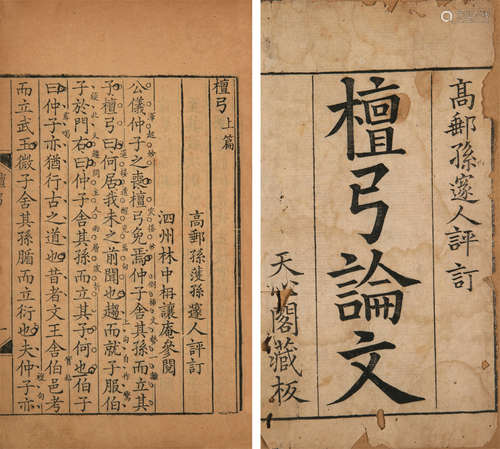 檀弓上篇
高郵孫濩孫邃人評訂
泗州林中枏讓庵參閱
公儀仲子之喪檀弓免焉仲子舍其孫而立其
子檀弓曰何居我未之前聞也趨而就子服伯
子於門右曰仲子舍其孫而立其子何也伯子
曰仲子亦猶行古之道也昔者文王舍伯邑考
而立武王微子舍其孫腯而立衍也夫仲子亦
檀弓
高郵孫邃人評訂
檀弓論文
天心閣藏板